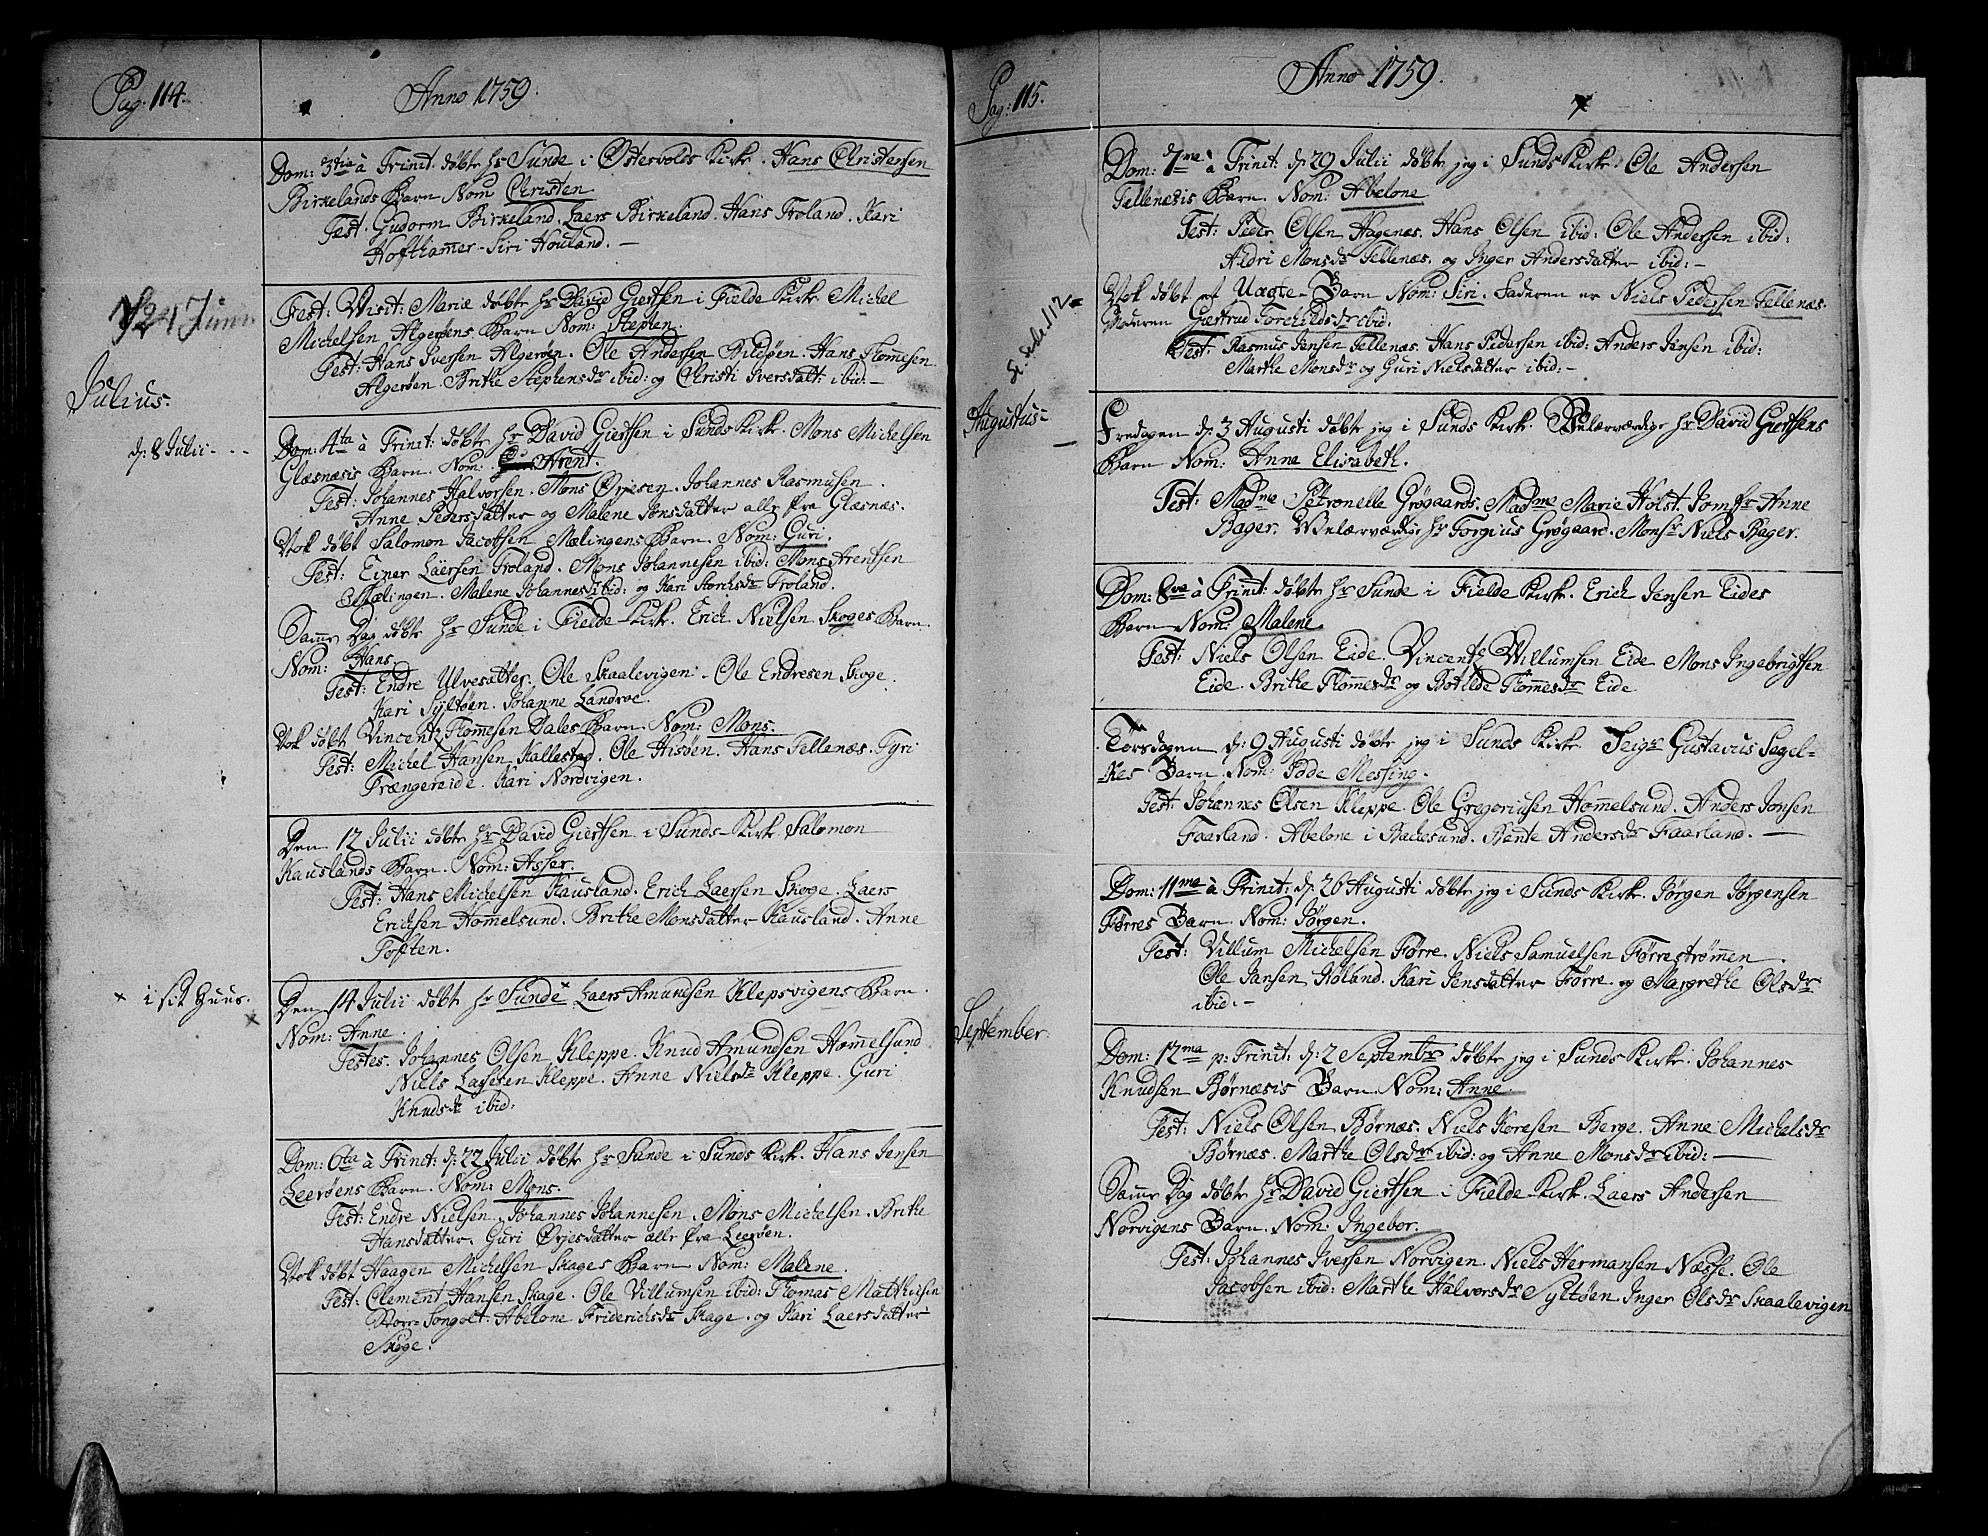 Pag. 114.
Anno 1759.
Dom: 3tia à Trinit: døbte Hr Sunde i Østevolds Kirke. Hans Christensen
Birkelands Barn Nom Christen
Test. Gudorm Birkeland. Laers Birkeland. Hans Troland. Kari
Hofthamer. Siri Houland. —
Fest: Visit: Mariæ døbte Hr David Giertsen i Fielde Kirke Michel
Michelsen Algerøens Barn Nom: Stephen.
Test: Hans Iversen Algerøen. Ole Andersen Bildøen. Hans Thomesen
Algerøen. Brithe Stephensdr ibid: og Christi Iversdatt: ibid. —
Julius.
d: 8 Julii - - -
Dom: 4ta à Trinit: døbte Hr David Giertsen i Sunds Kirke. Mons Michelsen
Glæsnæsis Barn. Nom: Arent.
Test: Johannes Halvorsen. Mons Ørjesen. Johannes Rasmusen.
Anne Pedersdatter og Malene Jonsdatter alle fra Glæsnes.
Nok døbt Salomon Jacobsen Mælingens Barn. Nom: Guri.
Test: Einer Laersen Troland. Mons Johannesen ibid: Mons Arentsen
Mælingen. Malene Johannesdr ibid: og Kari Knudsdr Troland.
Samme Dag døbte Hr Sunde i Fielde Kirke. Erich Nielsen Skoges Barn
Nom: Hans
Test: Endre Ulvesætter. Ole Skaalevigen. Ole Endresen Skoge.
Kari Syltøen. Johanne Landroe.
Nok døbt Vincentz Thomesen Dales Barn. Nom: Mons.
Test: Michel Hansen Kallestad. Ole Hisøen. Hans Tellenæs. Tyri
Trængereide. Kari Nordvigen.
Den 12 Julii døbte Hr David Giertsen i Sunds Kirke Salomon
Kauslands Barn. Nom: Asser.
Test: Hans Michelsen Kausland. Erich Laersen Skoge. Laers
Erichsen Hommelsund. Brithe Monsdatter Kausland. Anne
Toften.
× i sit Huus. ×
Den 14 Julii døbt Hr Sunde × Laers Amundsen Klepsvigens Barn.
Nom: Anne.
Testes. Johannes Olsen Kleppe. Knud Amundsen Hommelsund.
Niels Lassesen Kleppe. Anne Nielsdr Kleppe. Guri
Knudsdr ibid:
Dom: 6ta à Trinit: d: 22 Julii døbte Hr Sunde i Sunds Kirk. Hans Jensen
Leerøens Barn. Nom: Mons.
Test: Endre Nielsen. Johannes Johannesen. Mons Michelsen. Brithe
Hansdatter. Guri Ørjesdatter alle fra Leerøen.
Nok døbt Haagen Michelsen Skages Barn Nom: Malene.
Test: Clement Hansen Skage. Ole Villumsen ibid: Thomas Matthiisen
Songolt. Abelone Friderichsdr Skage. og Kari Laersdatter
Skoge.
Pag: 115.
Anno 1759.
Dom: 7me à Trinit: d: 29 Julii døbte jeg i Sunds Kirk. Ole Andersen
Tellenæsis Barn. Nom: Abelone
Test: Peder Olsen Hagenæs. Hans Olsen ibid: Ole Andersen ibid:
Aldri Monsdr Tellenæs. og Inger Andersdatter ibid: —
Nok døbt et Uægte Barn Nom: Siri. Faderen er Niels Pedersen Tellenæs.
Moderen Giertrud Torchildsdr ibid.
Test: Rasmus Jensen Tellenæs. Hans Pedersen ibid: Anders Jensen ibid:
Marthe Monsdr og Guri Nielsdatter ibid: —
Augustus
Fredagen d: 3 Augusti døbte jeg i Sunds Kirk. Velærværdige Hr David Giertsens
Barn Nom: Anne Elisabeth.
Test: Madme Petronelle Grøgaards. Madme Marie Holst. Jomfr Anne
Bager. Velærværdige Hr Torgius Grøgaard. Monsr Niels Bager.
Dom: 8va à Trinit: døbte Hr Sunde i Fielde Kirk. Erich Jensen Eides
Barn Nom: Malene.
Test: Niels Olsen Eide. Vincentz Villumsen Eide. Mons Ingebrigtsen
Eide. Brithe Thomesdr og Botilde Thomesdr Eide
Torsdagen d: 9 Augusti døbte jeg i Sunds Kirke Seigr Gustavus Segel-
-kes Barn. Nom: Pode Messing.
Test: Johannes Olsen Kleppe. Ole Gregoriusen Hommelsund. Anders Jonsen
Faarland. Abelone i Bachesund. Bente Andersdr Faarland. —
Dom: 11ma à Trinit: d: 26 Augusti døbte jeg i Sunds Kirk. Jørgen Jørgensen
Førres Barn. Nom: Jørgen.
Test: Villum Michelsen Førre. Niels Samuelsen Førrestrømmen.
Ole Jansen Høland. Kari Jensdatter Førre. og Margrethe Olsdr
ibid. —
September.
Dom: 12ma p: Trinit: d: 2 Septembr døbte jeg i Sunds Kirk. Johannes
Knudsen Børnæsis Barn. Nom: Anne.
Test: Niels Olsen Børnæs. Niels Koresen Berge. Anne Michelsdr
Børnæs. Marthe Olsdr ibid: og Anne Monsdr ibid: —
Samme Dag døbte Hr David Giertsen i Fielde Kirk. Laers Andersen
Norvigens Barn. Nom: Ingebor.
Test: Johannes Iversen Norvigen. Niels Hermansen Næsse. Ole
Jacobsen ibid: Marthe Halvorsdr Syltøen. Inger Olsdr Skaalevigen